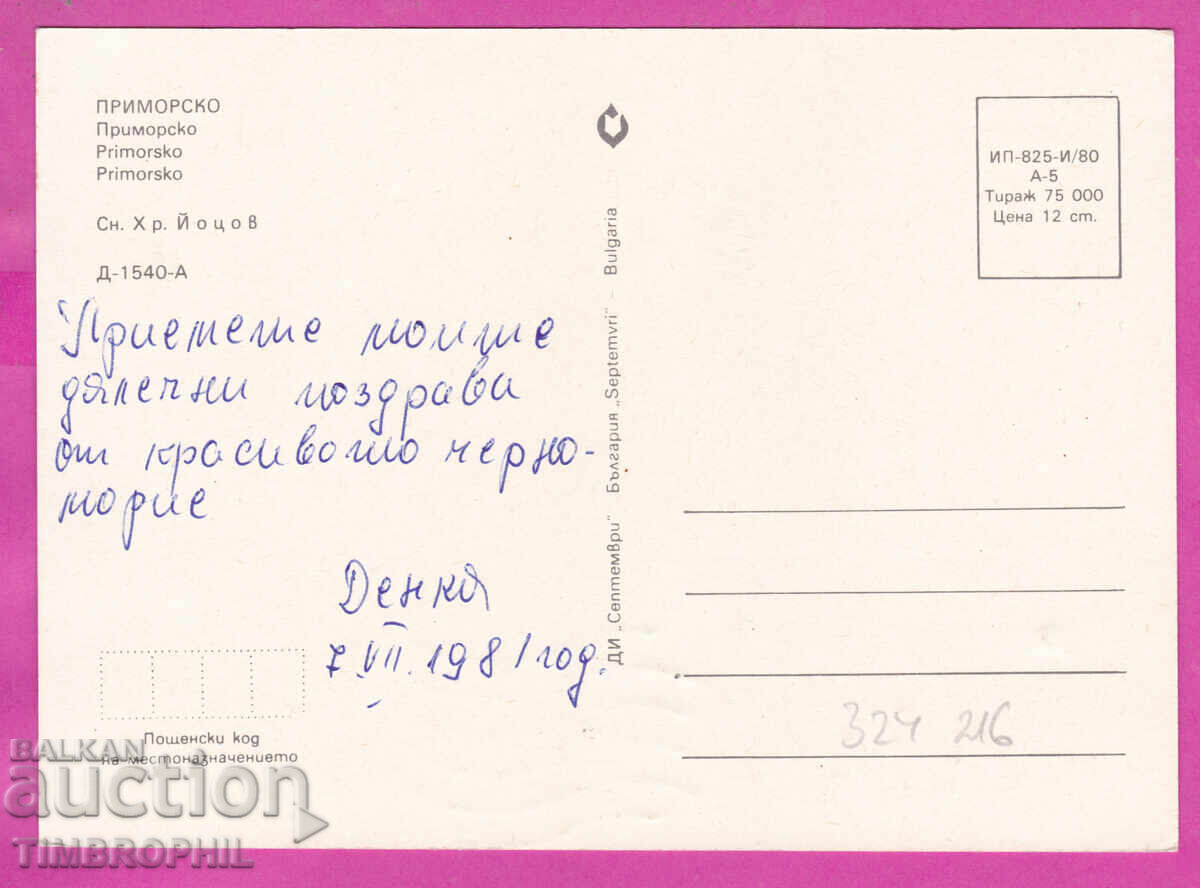 ПРИМОРСКО
Приморско
Primorsko
Primorsko
Сн. Хр. Йоцов
Д-1540-А
Приемете моите
далечни поздрави
от красивото черно-
морие
Денка
7.VII.1981 год.
Пощенски код
на местоназначението
ДИ „Септември" България „Septemvri" – Bulgaria
ИП-825-И/80
А-5
Тираж 75 000
Цена 12 ст.
324 216
BALKAN
auction
TIMBROPHIL